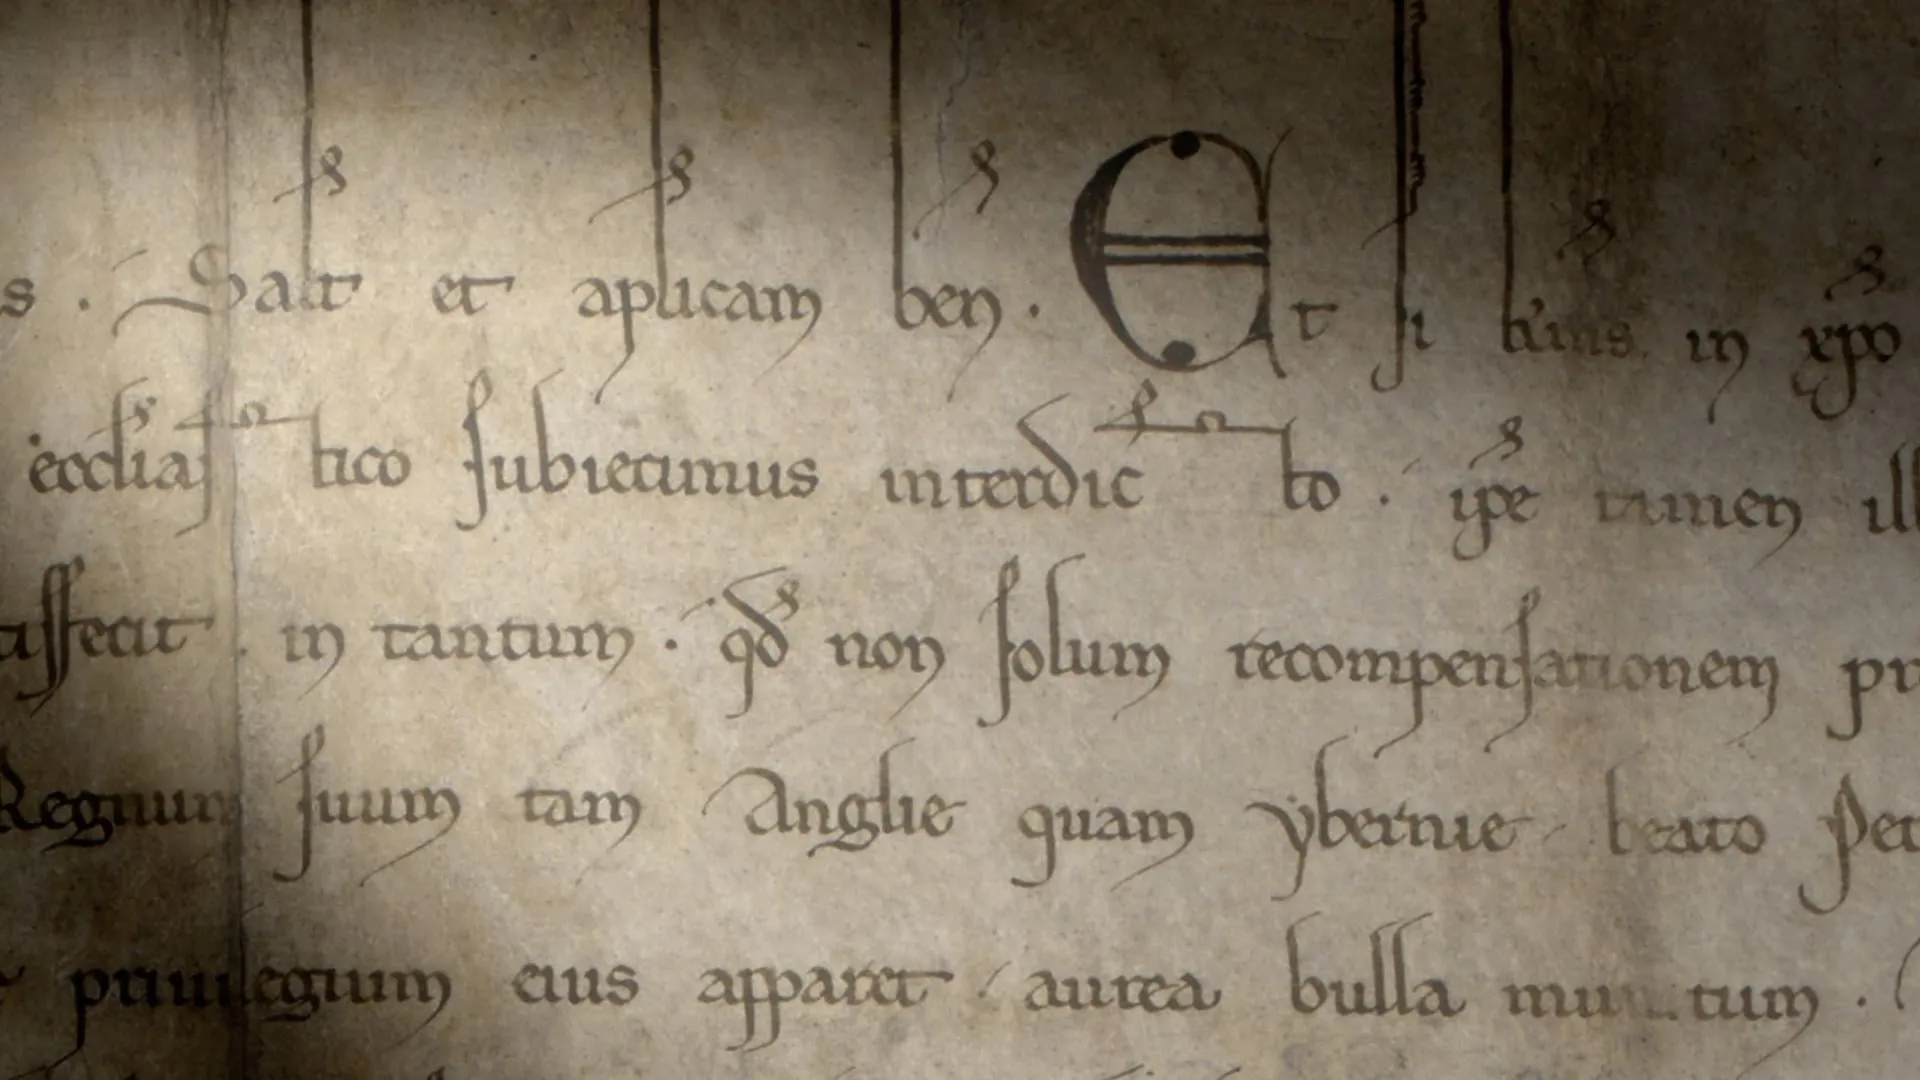 s. Salt et aplicam ben. Et si kmus in xpo
eccliastico subiecimus interdicto. ipe tamen ill
tisfecit. in tantum. qd non solum recompensationem pr
Regnum suum tam Anglie quam ybernie beato Pet
privilegium eius apparet. aurea bulla munitum.